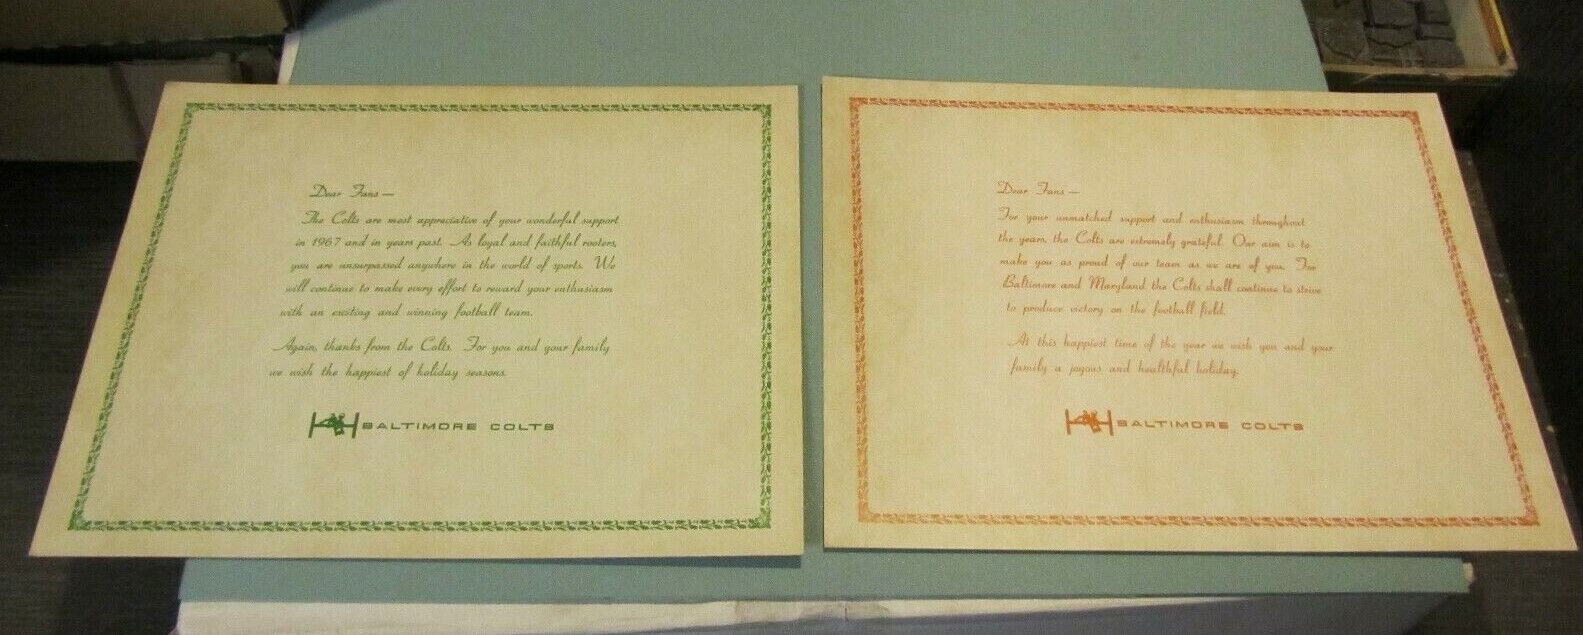 Dear Fans—
The Colts are most appreciative of your wonderful support
in 1967 and in years past. As loyal and faithful rooters,
you are unsurpassed anywhere in the world of sports. We
will continue to make every effort to reward your enthusiasm
with an exciting and winning football team.
Again, thanks from the Colts. For you and your family
we wish the happiest of holiday seasons.
BALTIMORE COLTS
Dear Fans—
For your unmatched support and enthusiasm throughout
the years, the Colts are extremely grateful. Our aim is to
make you as proud of our team as we are of you. For
Baltimore and Maryland the Colts shall continue to strive
to produce victory on the football field.
At this happiest time of the year we wish you and your
family a joyous and healthful holiday.
BALTIMORE COLTS